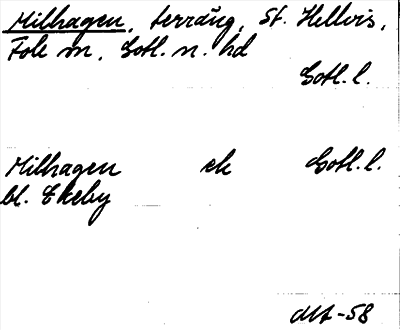 Milhagen, terräng, St. Hellvis,
Fole sn, Gotl. n. hd
Gotl. l.
Milhagen ek Gotl. l.
bl. Ekeby
-58